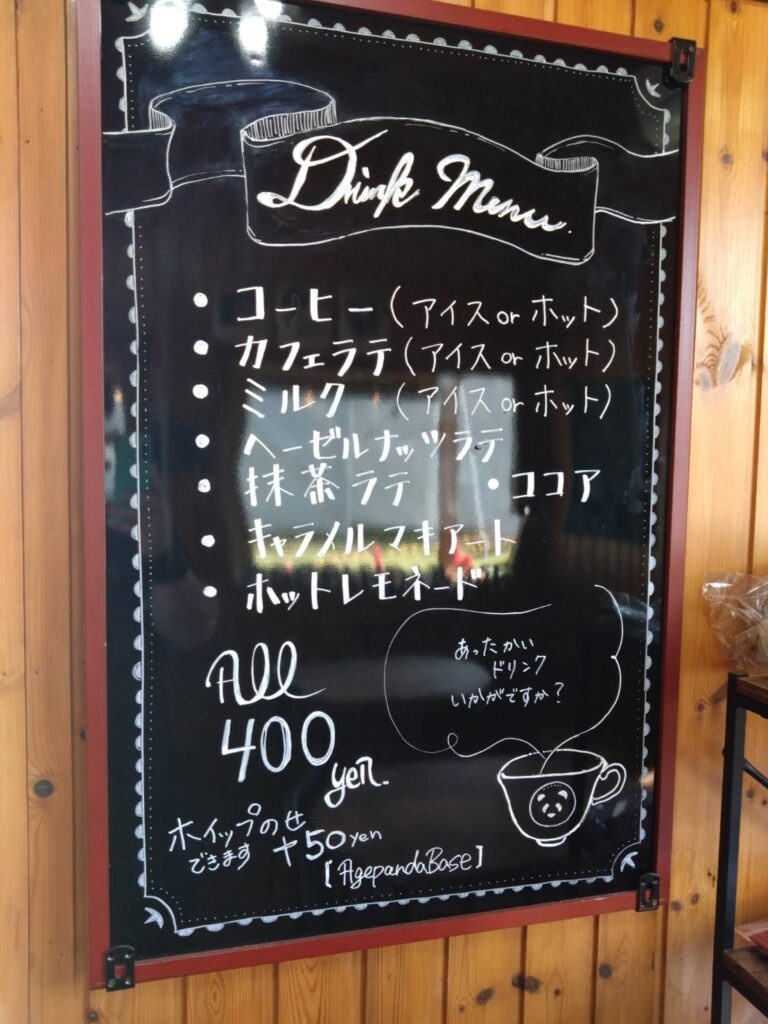 Drink Menu.
・コーヒー(アイス or ホット)
・カフェラテ(アイス or ホット)
・ミルク (アイス or ホット)
・ヘーゼルナッツラテ
・抹茶ラテ ・ココア
・キャラメルマキアート
・ホットレモネード
あったかい
ドリンク
いかがですか?
All
400
yen.
ホイップのせ
できます +50yen
[AgepandaBase]